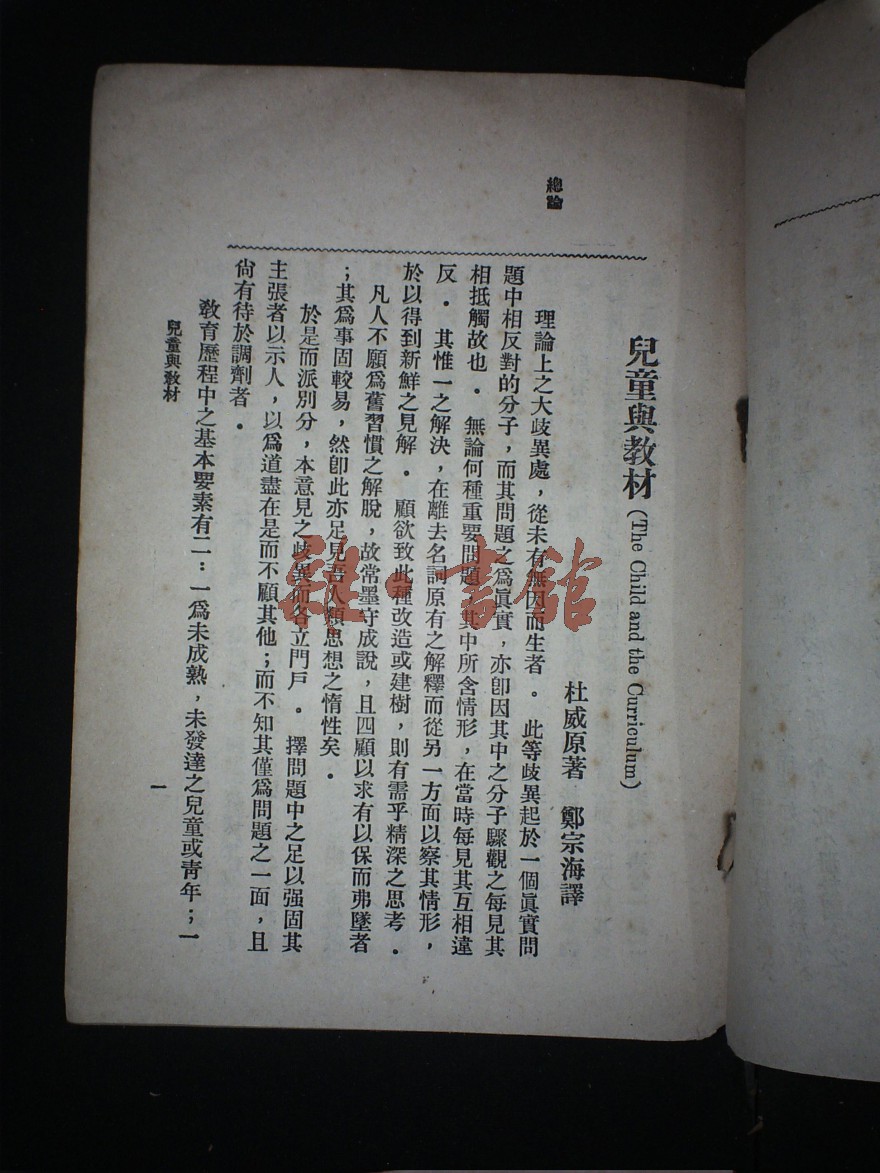 兒童與教材 (The Child and the Curriculum)
杜威原著 鄭宗海譯
總論
理論上之大歧異處，從未有無因而生者。此等歧異起於一個眞實問
題中相反對的分子，而其問題之爲眞實，亦卽因其中之分子驟觀之每見其
相抵觸故也。無論何種重要問題，其中所含情形，在當時每見其互相違
反。其惟一之解決，在離去名詞原有之解釋而從另一方面以察其情形，
於以得到新鮮之見解。顧欲致此種改造或建樹，則有需乎精深之思考。
凡人不願爲舊習慣之解脫，故常墨守成說，且四顧以求有以保而弗墜者
；其爲事固較易，然卽此亦足見吾人類思想之惰性矣。
於是而派別分，本意見之歧異而各立門戶。擇問題中之足以强固其
主張者以示人，以爲道盡在是而不顧其他；而不知其僅爲問題之一面，且
尙有待於調劑者。
敎育歷程中之基本要素有二：一爲未成熟，未發達之兒童或靑年；一
兒童與敎材
一
雜·書館